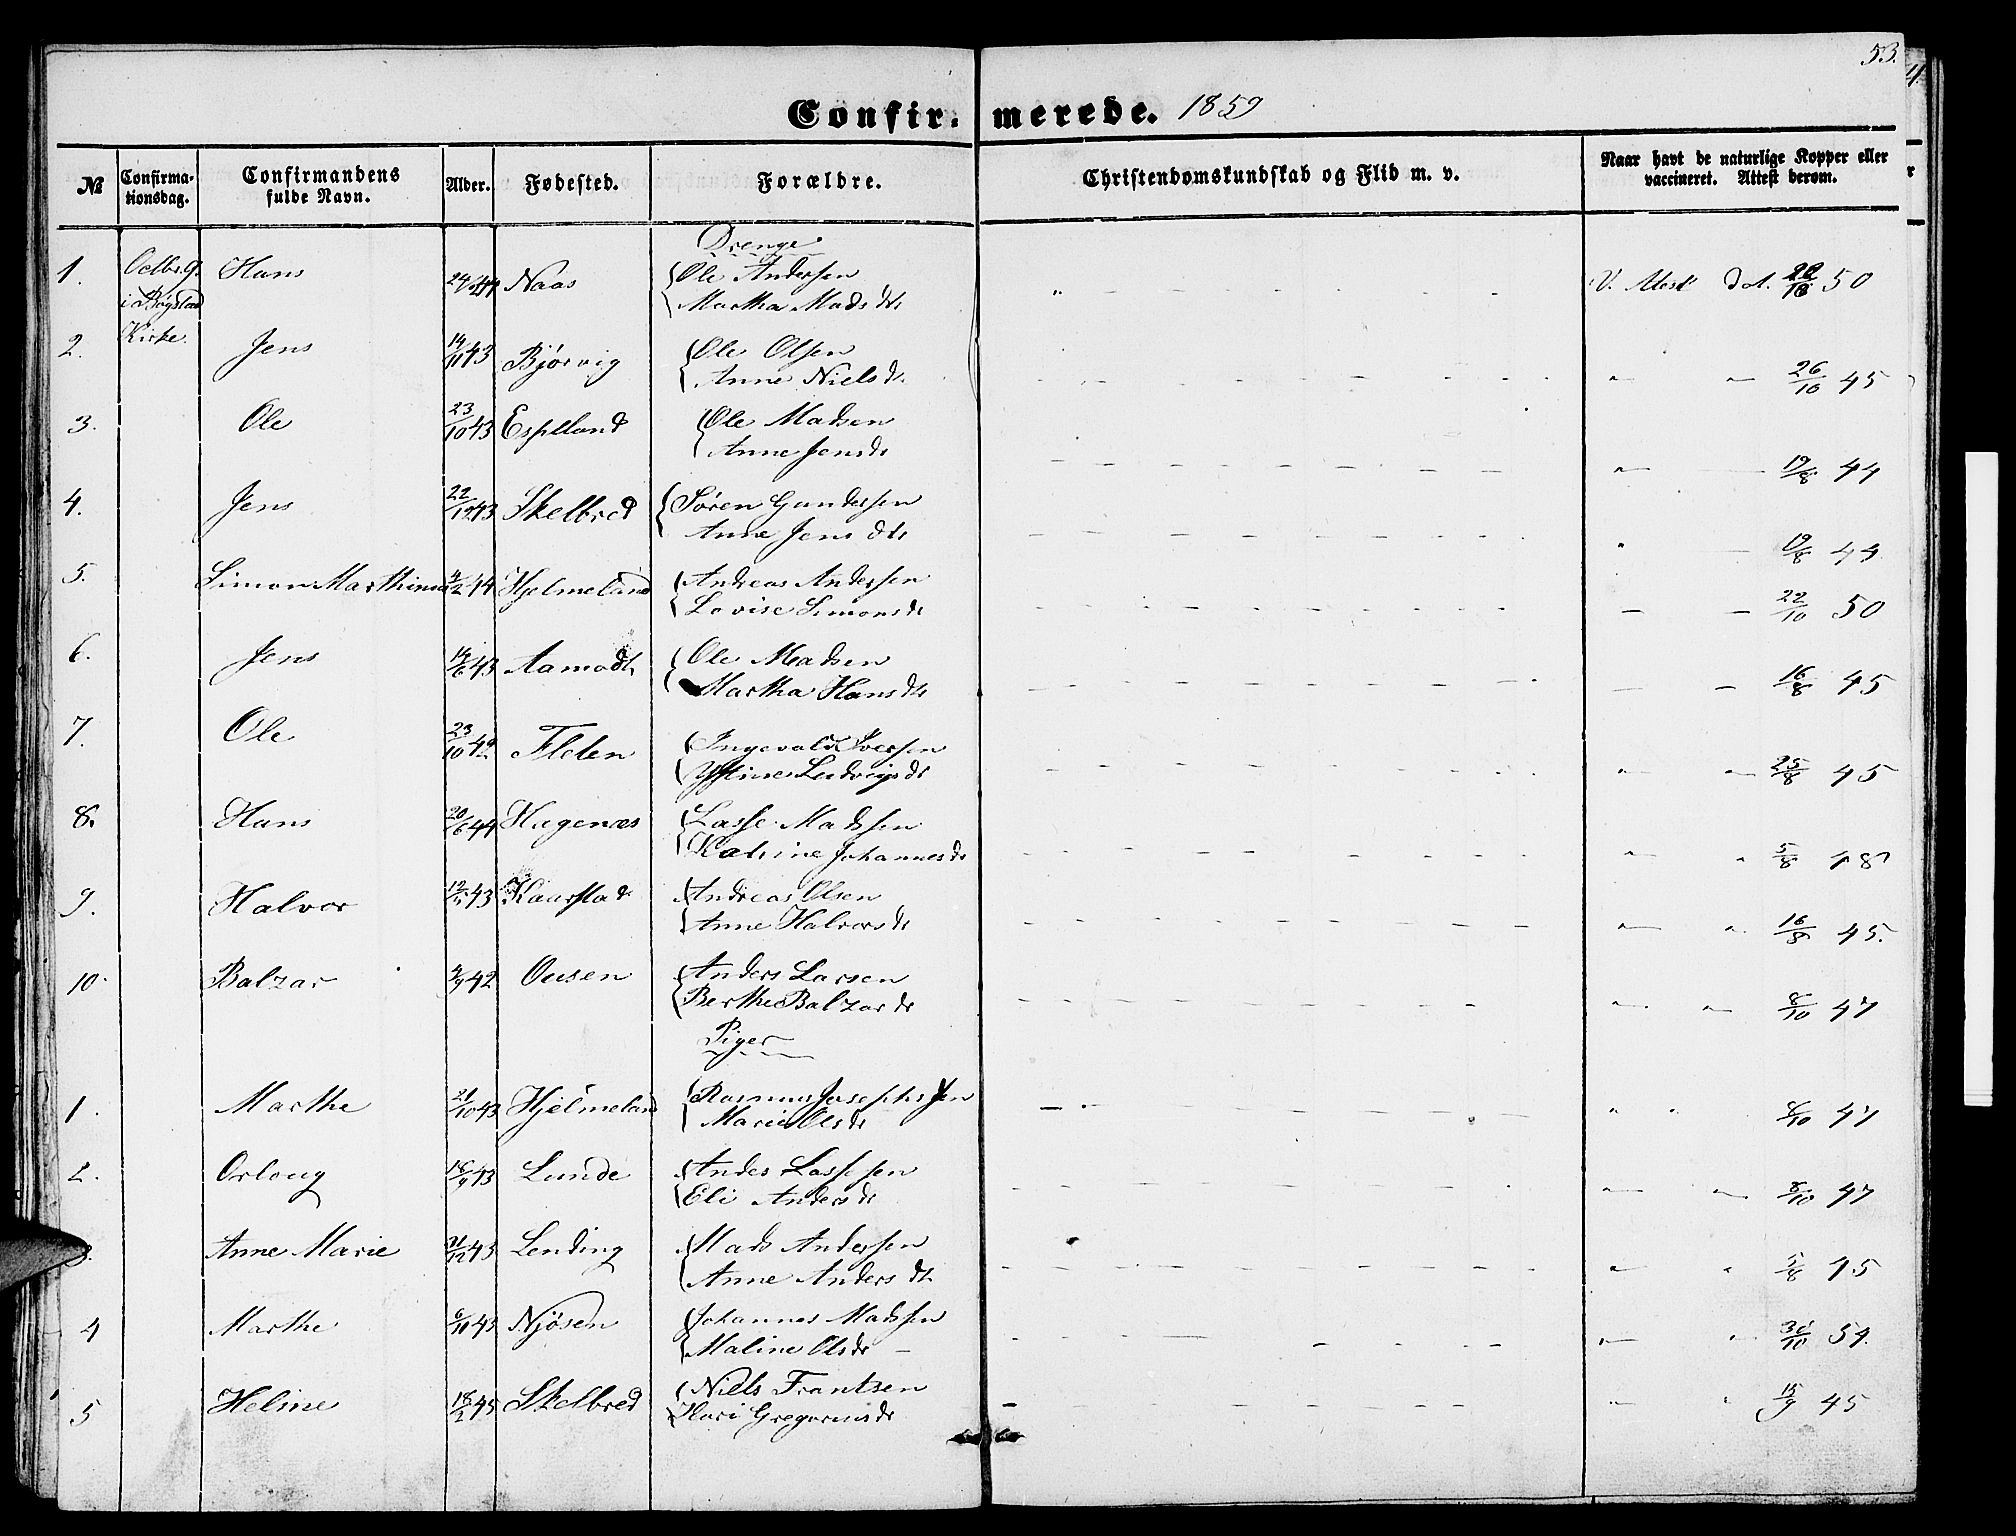 53.
Confir- merede. 1859
№ Confirma-tionsdag. Confirmandens fulde Navn. Alder. Fødested. Forældre. Christendomskundskab og Flid m. v. Naar havt de naturlige Kopper eller vaccineret. Attest derom.
Drenge
1. Hans Naas Ole Andersen V. Attest dat. 50
i Bøgstad Martha Madsdt
Kirke
2. Jens 14/11 43 Bjørvig Ole Olsen
Anne Nielsdt. " " 26/10 45
3. Ole 23/10 43 Espeland Ole Madsen
Anne Jensdt " 19/8 44
4. Jens 22/12 43 Skelbred Søren Gundersen
Anne Jensdt " 19/8 44
5. Simon Marthinus 4/2 44 Hjelmeland Andreas Andersen
Lovise Simonsdt 22/10 50
6. Jens 14/6 43 Aamodt Ole Madsen
Martha Hansdt 16/8 45
7. Ole 23/10 42 Fleten Ingevald Iversen
Ludvigsdt " " 25/8 45
8. Hans 20/6 44 Hagenæs Lasse Madssen
Katrine Johannesdt " " 5/8 48
9. Halvor 43 Kaarstad Andreas Olsen
Anne Halvorsdt " " 16/8 45.
10. Balzar 4/9 42 Ousen Anders Larsen
Berthe Balzardt " " 8/10 47
Piger
1. Marthe 21/10 43 Hjelmeland Rasmus Josephssen
Marie Olsdt " " " 8/10 47
2. Orloug 43 Lunde Andes Lassesen
Eli Andersdt " " 8/10 47
3. Anne Marie 31/12 43 Lending Mads Andersen
Anne Andersdt. " " 5/8 45
4 Marthe 6/11 43 Njøsen Johannes Madssen
Maline Olsdt " " 54.
5 Heline 18/2 45 Skelbred Niels Frantsen
Gregoriusdt " " 15/9 45